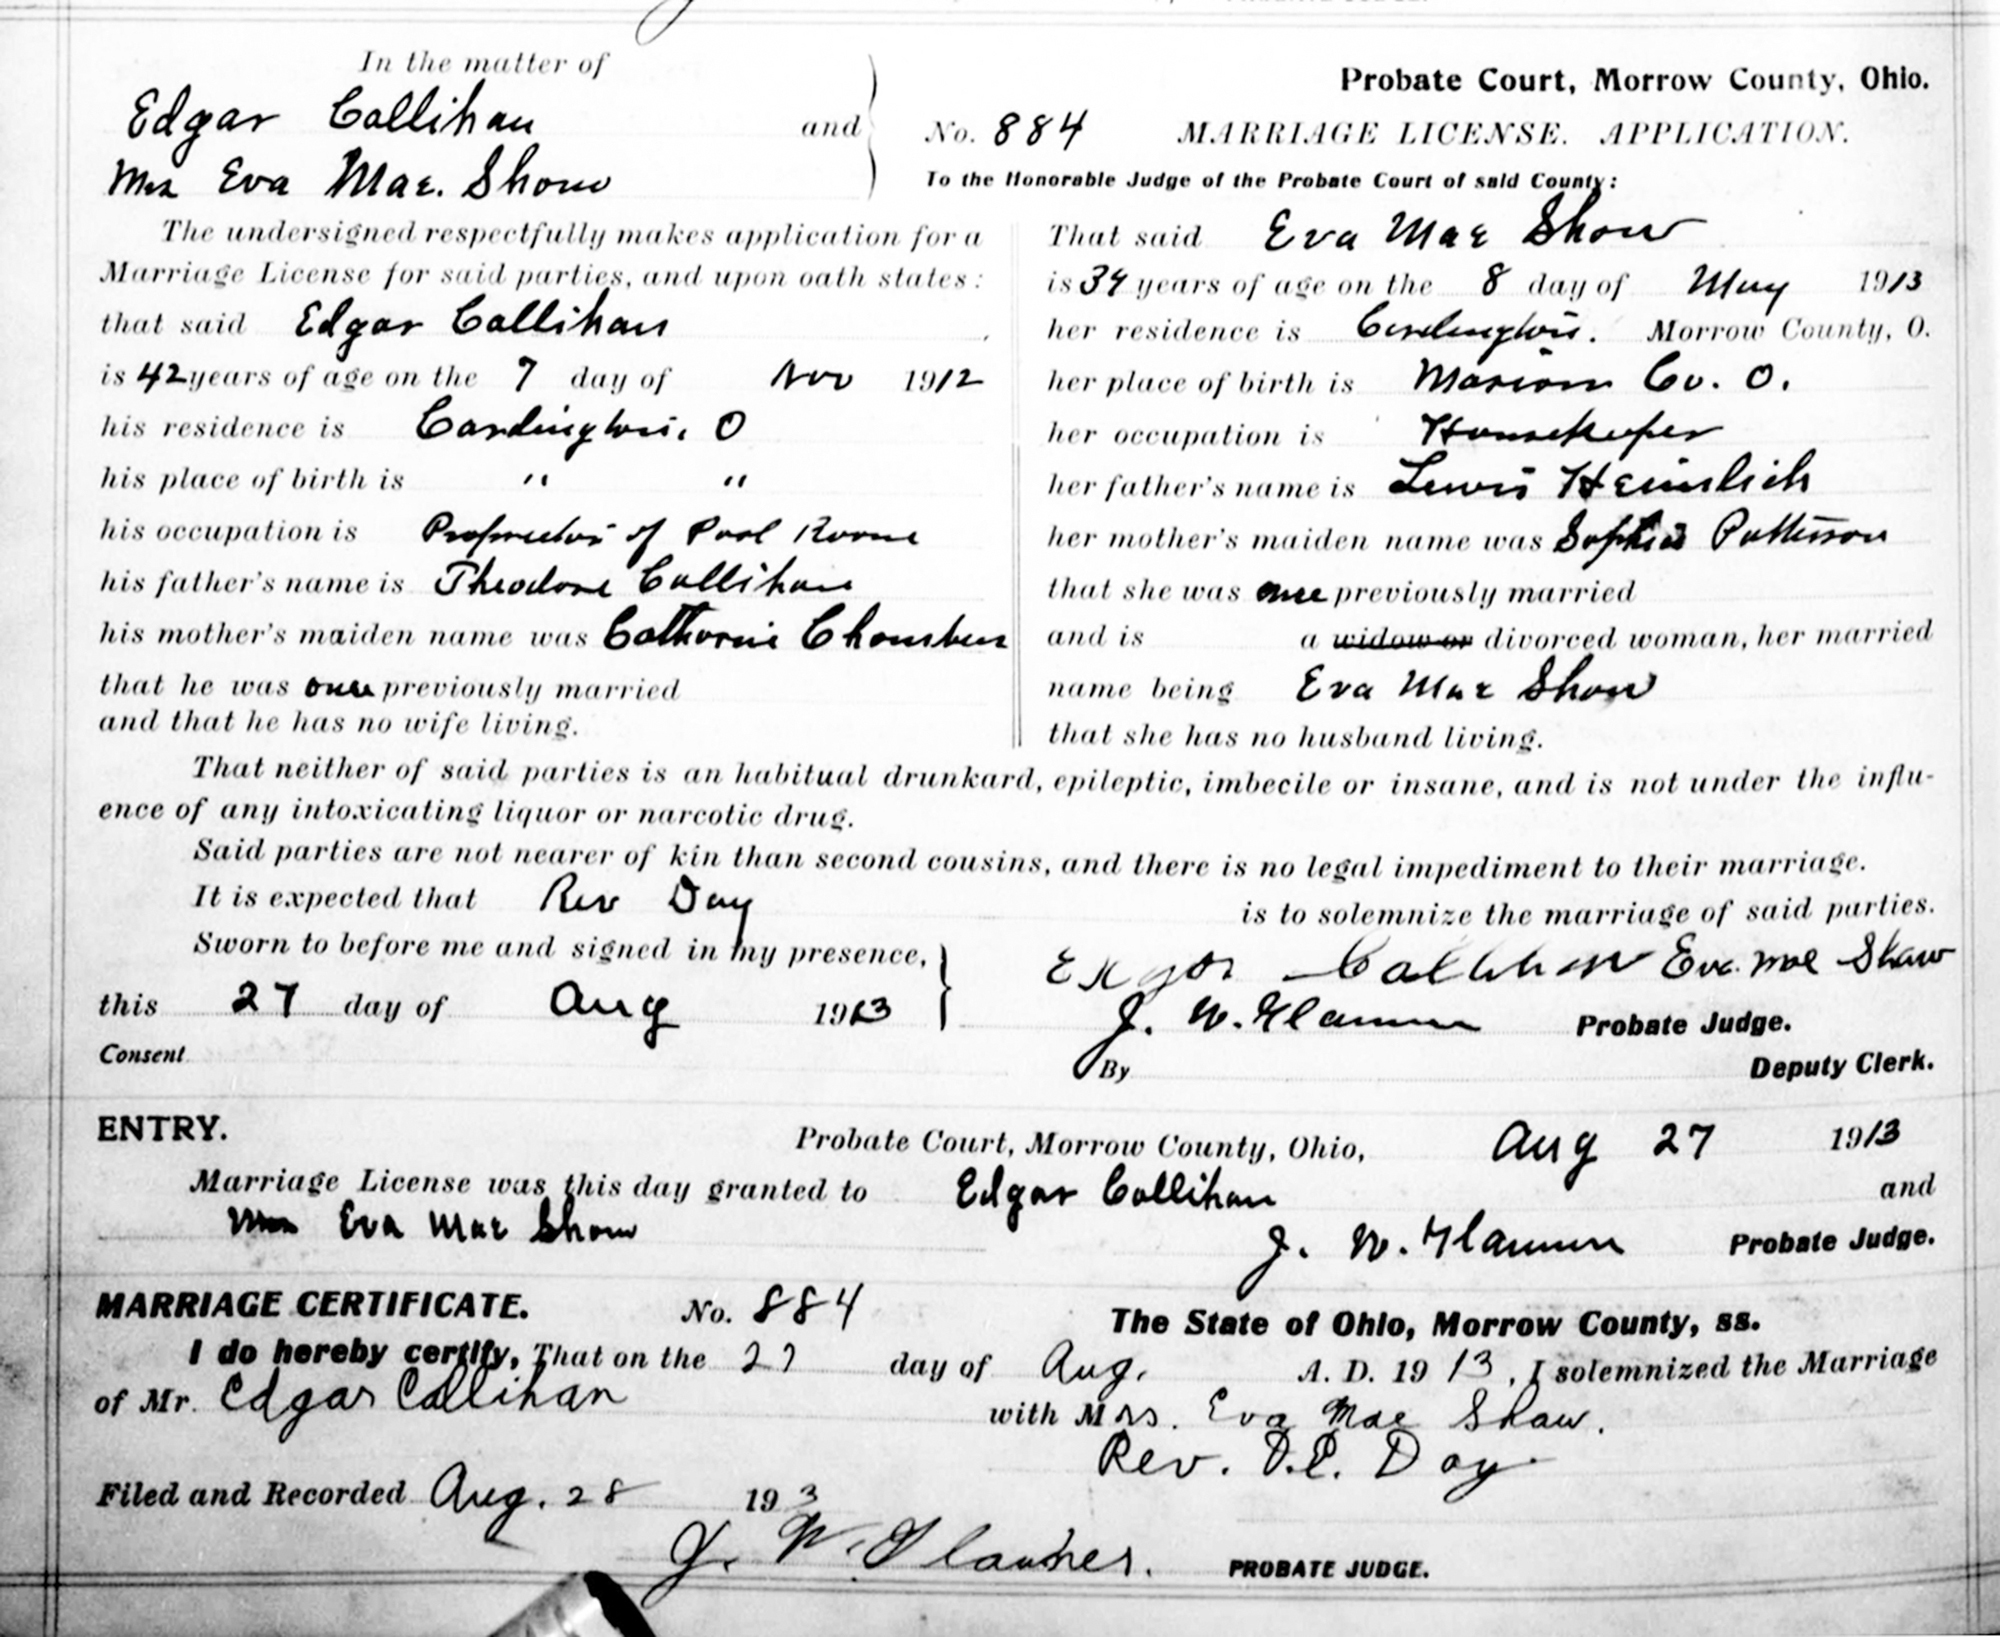 In the matter of
Edgar Callihan and
Mrs Eva Mae. Shaw
Probate Court, Morrow County, Ohio.
No. 884 MARRIAGE LICENSE. APPLICATION.
To the Honorable Judge of the Probate Court of said County:
The undersigned respectfully makes application for a
Marriage License for said parties, and upon oath states:
that said Edgar Callihan
is 42 years of age on the 7 day of Nov 1912
his residence is Cardington, O
his place of birth is " "
his occupation is Proprietor of Pool Room
his father's name is Theodore Callihan
his mother's maiden name was Catharine Chambers
that he was once previously married
and that he has no wife living.
That said Eva Mae Shaw
is 34 years of age on the 8 day of May 1913
her residence is Cardington. Morrow County, O.
her place of birth is Marion Co. O.
her occupation is Housekeeper
her father's name is Lewis Heimlich
her mother's maiden name was Sophia Patterson
that she was once previously married
and is a widow or divorced woman, her married
name being Eva Mae Shaw
that she has no husband living.
That neither of said parties is an habitual drunkard, epileptic, imbecile or insane, and is not under the influ-
ence of any intoxicating liquor or narcotic drug.
Said parties are not nearer of kin than second cousins, and there is no legal impediment to their marriage.
It is expected that Rev Day is to solemnize the marriage of said parties.
Sworn to before me and signed in my presence, Edgar Callihan Eva Mae Shaw
this 27 day of Aug 1913 J. W. Probate Judge.
Consent By Deputy Clerk.
ENTRY. Probate Court, Morrow County, Ohio, Aug 27 1913
Marriage License was this day granted to Edgar Callihan and
Mrs Eva Mae Shaw J. W. Probate Judge.
MARRIAGE CERTIFICATE. No. 884 The State of Ohio, Morrow County, ss.
I do hereby certify, That on the 27 day of Aug. A. D. 1913, I solemnized the Marriage
of Mr. Edgar Callihan with Mrs. Eva Mae Shaw.
Rev. Day
Filed and Recorded Aug. 28 193
J. W. PROBATE JUDGE.